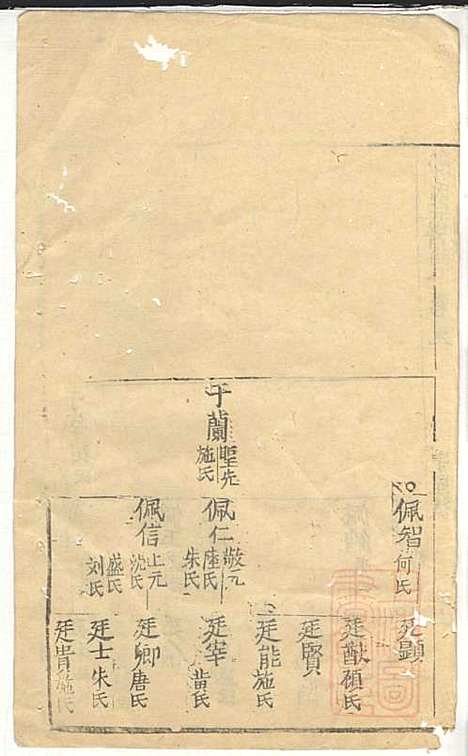 于蘭 聖先 施氏
佩智 何氏
佩仁 敬元 陸氏 朱氏
佩信 上元 沈氏 盛氏 刘氏
廷顯
廷猷 顧氏
廷賢
廷能 施氏
廷宰 黄氏
廷卿 唐氏
廷士 朱氏
廷貴 施氏